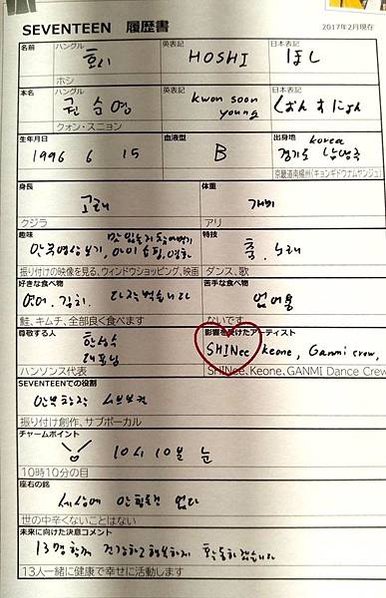 SEVENTEEN 履歴書
2017年2月現在
名前 ハングル 英表記 日本表記
호시 HOSHI ほし
ホシ
本名 ハングル 英表記 日本表記
권순영 kwon soon young くぉんすにょん
クォン・スニョン
生年月日 血液型 出身地
1996 6 15 B korea
경기도 남양주
京畿道南楊州(キョンギドウナムヤンジュ)
身長 体重
고래 개미
クジラ アリ
趣味 特技
안무영상보기, 아이쇼핑, 영화 춤, 노래
振り付けの映像を見る、ウインドウショッピング、映画 ダンス、歌
好きな食べ物 苦手な食べ物
연어, 김치, 다 잘 먹습니다 없어용
鮭、キムチ、全部良く食べます ないです
尊敬する人 影響を受けたアーティスト
한성수 대표님 SHINee, keone, Ganmi crew,
ハンソンス代表 SHINee、Keone、GANMI Dance Crew
SEVENTEENでの役割
안무창작 서브보컬
振り付け創作、サブボーカル
チャームポイント
10시 10분 눈
10時10分の目
座右の銘
세상에 안 힘든건 없다
世の中辛くないことはない
未来に向けた決意コメント
13명 함께 건강하고 행복하게 활동하겠습니다
13人一緒に健康で幸せに活動します